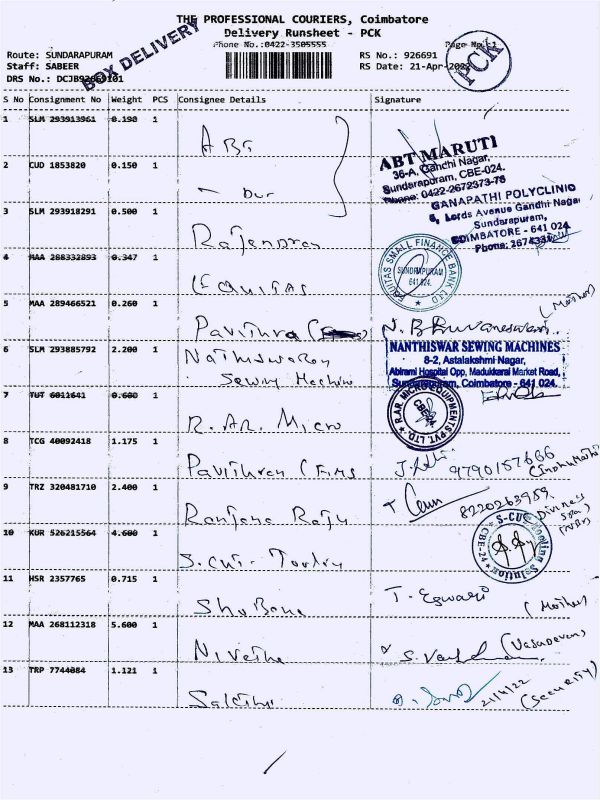 THE PROFESSIONAL COURIERS, Coimbatore
Delivery Runsheet - PCK
Phone No.:0422-3505555
Page No.:1
BOX DELIVERY
PCK
Route: SUNDARAPURAM
RS No.: 926691
Staff: SABEER
RS Date: 21-Apr-2022
DRS No.: DCJB92669101
S No Consignment No Weight PCS Consignee Details Signature
1 SLM 293913961 0.190 1
ABT
ABT MARUTI
36-A, Gandhi Nagar,
Sundarapuram, CBE-024.
Phone: 0422-2672373-76
2 CUD 1853820 0.150 1
GANAPATHI POLYCLINIC
6, Lords Avenue Gandhi Nagar
Sundarapuram,
COIMBATORE - 641 024
3 SLM 293918291 0.500 1
Rajendran
4 MAA 288332893 0.347 1
EQUITAS
EQUITAS SMALL FINANCE BANK LTD.
SUNDRAPURAM
641 024.
5 MAA 289466521 0.260 1
Pavithra
N. Bhuvaneswari
(Mother)
6 SLM 293885792 2.200 1
Nathiswaran
Sewing Machine
NANTHISWAR SEWING MACHINES
8-2, Astalakshmi Nagar,
Abirami Hospital Opp, Madukkarai Market Road,
Sundarapuram, Coimbatore - 641 024.
7 TUT 6011641 0.600 1
R. AR. Micro
R.AR. MICRO EQUIPMENTS PVT. LTD.
CBE-24
8 TCG 40092418 1.175 1
Pavithran (Fims
9790157666
9 TRZ 320481710 2.400 1
Ranjana Raju
8220263989
10 KUR 526215564 4.600 1
S. Cut - Tooling
S-CUT Tooling Solution
CBE-24
11 HSR 2357765 0.715 1
Shobana
T. Egwari
(Mother)
12 MAA 268112318 5.600 1
Nivetha
(Vasudevan)
13 TRP 7744084 1.121 1
Sakthi
21/4/22
(Security)